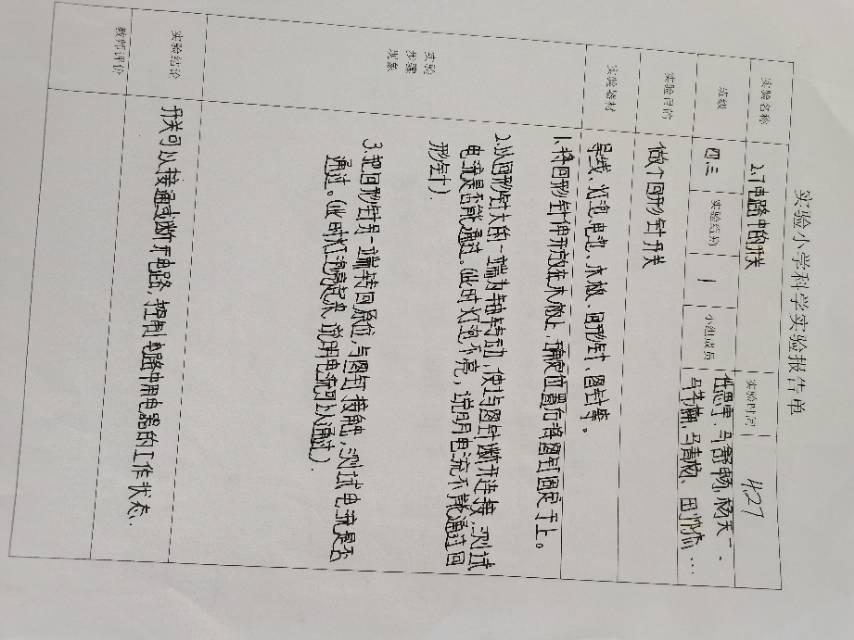 实验小学科学实验报告单
实验名称 2.7电路中的开关 实验时间 4.27
班级 四.三 实验组别 1 小组成员
马舒畅,杨天一.
实验目的 做个回形针开关
实验器材 导线、灯泡、电池、木板、回形针、图钉等。
实验
步骤
现象
1.将回形针伸开放在木板上,确定位置后将图钉固定于上。
2.以回形针大的一端为轴转动,使与图钉断开连接,测试
电流是否能通过。(此时灯泡不亮,说明电流不能通过回
形针).
3.把回形针另一端转回原位,与图钉接触,测试电流是否
通过。(此时灯泡亮起来,说明电流可以通过).
实验结论 开关可以接通或断开电路,控制电路中用电器的工作状态.
教师评价